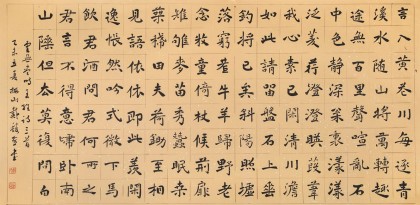 言入黃花川每逐青
溪水隨山將萬轉趣
途無百里聲喧亂石
中色靜深松裏漾漾
泛菱荇澄澄映葭葦
我心素已閑清川澹
如此請留盤石上垂
釣將已矣斜陽照墟
落窮巷牛羊歸野老
念牧童倚杖候荊扉
雉雊麥苗秀蠶眠桑
葉稀田夫荷鋤至相
見語依依即此羨閑
逸悵然吟式微下馬
飲君酒問君何所之
君言不得意歸臥南
山陲但去莫復問白
雲無盡時王維詩三首
乙未立夏